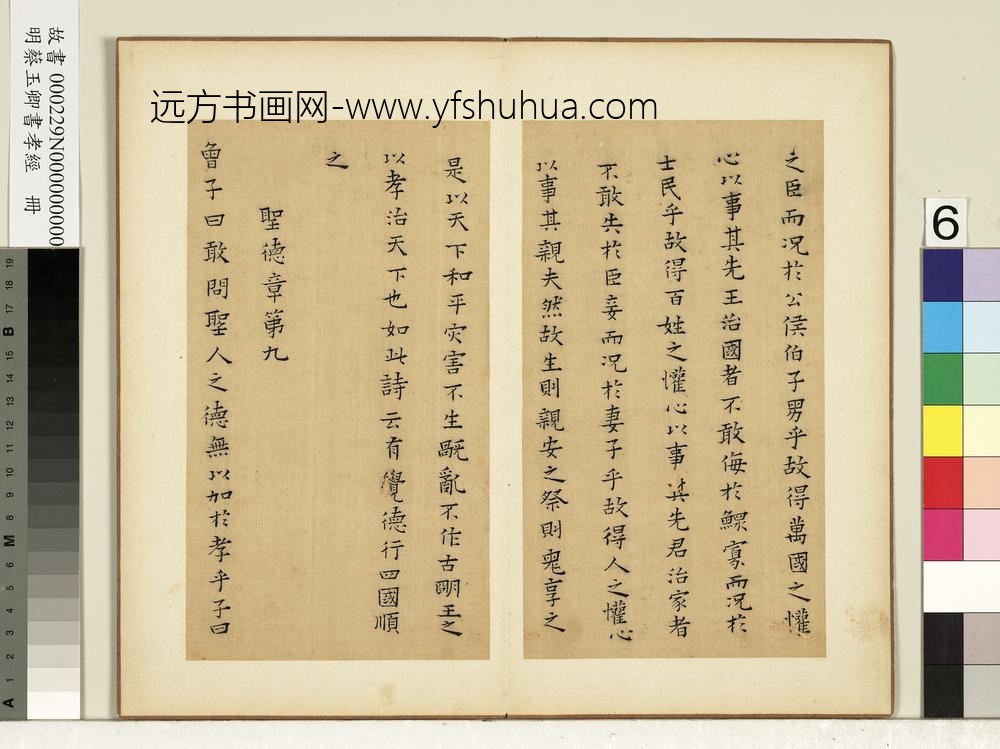 之臣而况於公侯伯子男乎故得萬國之懽
心以事其先王治國者不敢侮於鰥寡而况於
士民乎故得百姓之懽心以事其先君治家者
不敢失於臣妾而况於妻子乎故得人之懽心
以事其親夫然故生則親安之祭則鬼享之
是以天下和平灾害不生禍亂不作古明王之
以孝治天下也如此詩云有覺德行四國順
之
聖德章第九
曾子曰敢問聖人之德無以加於孝乎子曰
远方书画网-www.yfshuhua.com
故書 000229N000000000
明蔡玉卿書孝經 冊
6
A 1 2 3 4 5 6 M 8 9 10 11 12 13 14 15 B 17 18 19